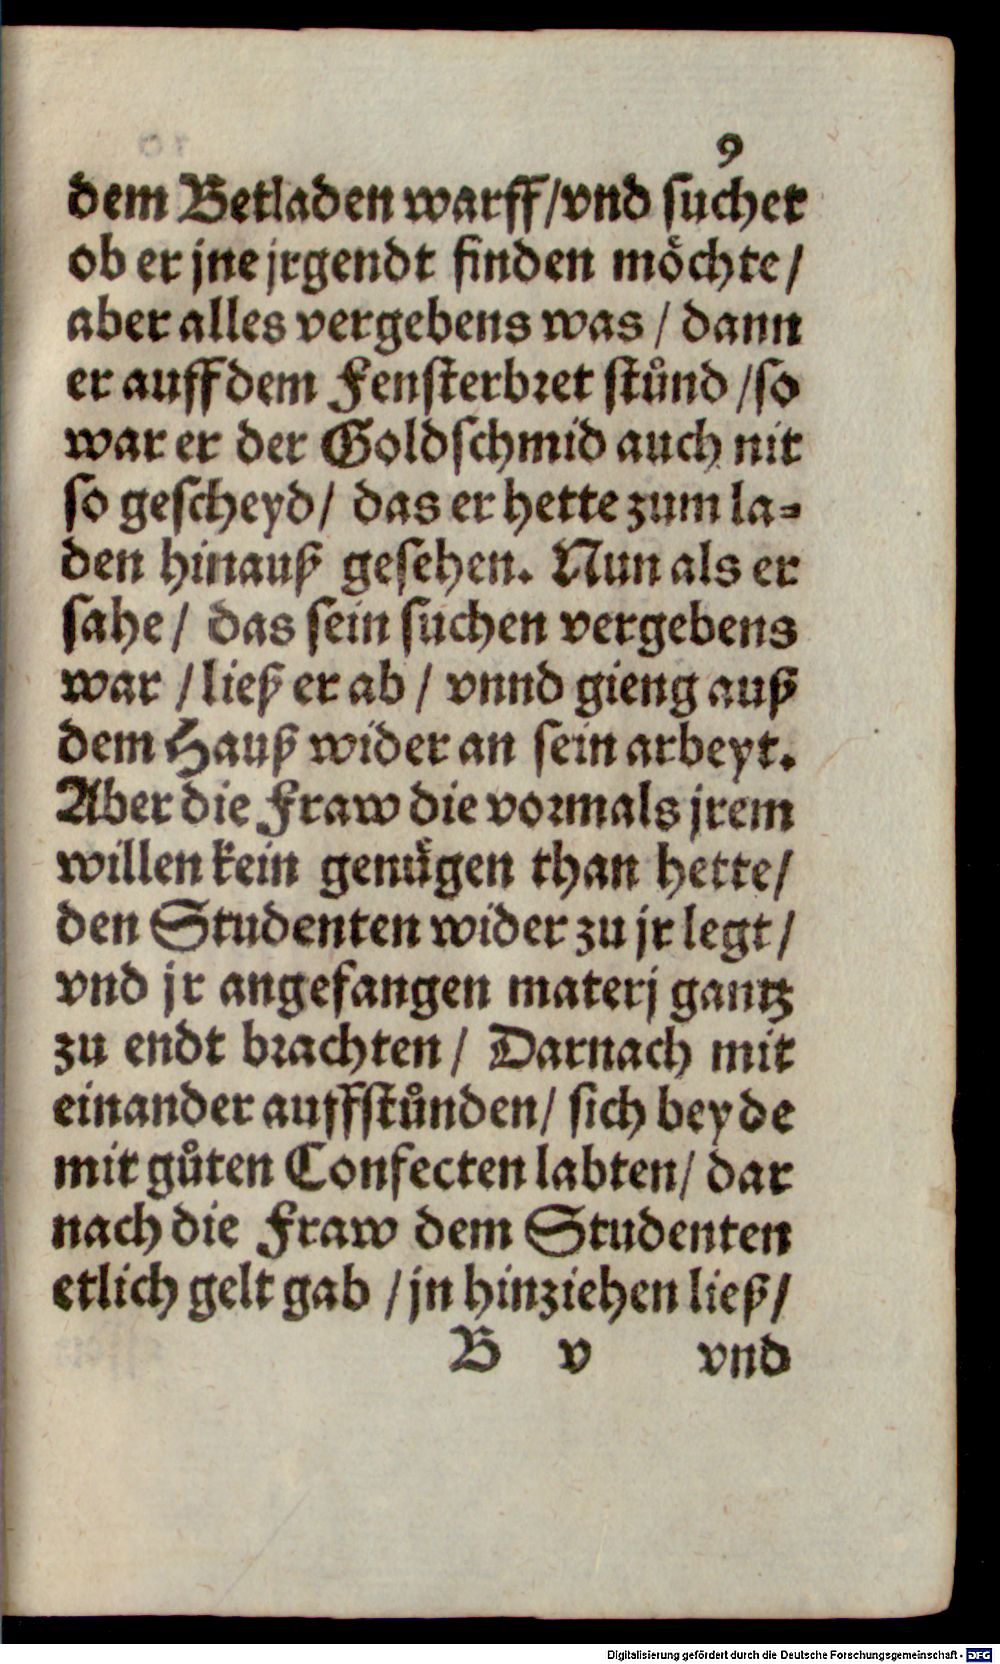 9
dem Betladen warff/vnd suchet
ob er jne jrgendt finden möchte/
aber alles vergebens was / dann
er auff dem Fensterbret stůnd /so
war er der Goldschmid auch nit
so gescheyd/ das er hette zum la-
den hinauß gesehen. Nun als er
sahe/ das sein suchen vergebens
war / ließ er ab/ vnnd gieng auß
dem Hauß wider an sein arbeyt.
Aber die Fraw die vormals jrem
willen kein genuͤgen than hette/
den Studenten wider zu jr legt/
vnd jr angefangen materj gantz
zu endt brachten/ Darnach mit
einander auffstůnden/ sich beyde
mit gůten Confecten labten/ dar
nach die Fraw dem Studenten
etlich gelt gab /jn hinziehen ließ/
B v vnd
Digitalisierung gefördert durch die Deutsche Forschungsgemeinschaft - DFG